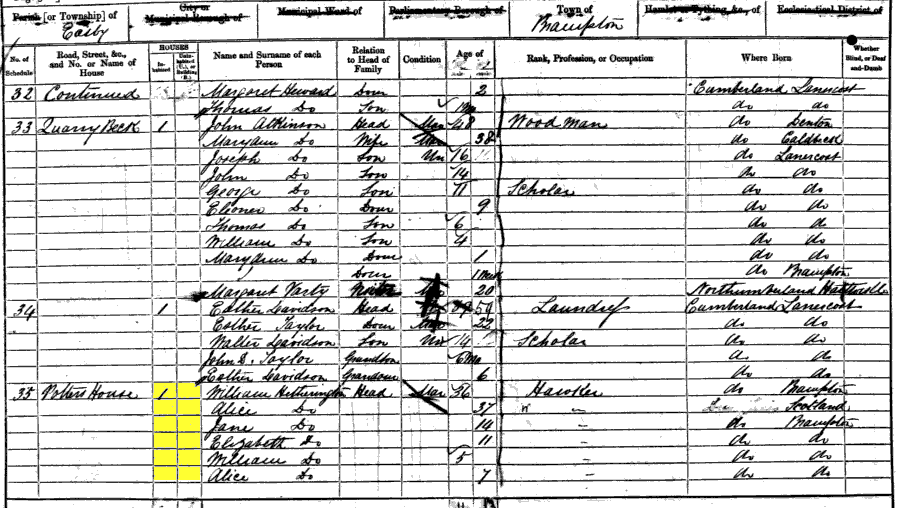 Parish [or Township] of
Easby
City or
Municipal Borough of
Municipal Ward of
Parliamentary Borough of
Town of
Brampton
Hamlet or Tything, &c., of
Ecclesiastical District of
No. of Schedule
Road, Street, &c., and No. or Name of House
HOUSES
Inhabited
Uninhabited (U.), or Building (B.)
Name and Surname of each Person
Relation to Head of Family
Condition
Age of
Rank, Profession, or Occupation
Where Born
Whether Blind, or Deaf-and-Dumb
32 Continued Margaret Heward Daur 2 Cumberland Lanercost
Thomas Do Son do do
33 Quarry Beck 1 John Atkinson Head Mar 48 Wood man do Denton
Maryann Do Wife Mar 38 do Caldbeck
Joseph Do Son Un 16 do Lanercost
John Do Son 14 do do
George Do Son 11 Scholar do do
Eleoner Do Daur 9 do do
Thomas Do Son 6 do do
William Do Son 4 do do
Maryann Do Daur 1 do do
Daur 1 do Brampton
Margaret Varty 20 Northumberland
34 1 Esther Davidson Head 59 Laundress Cumberland Lanercost
Esther Taylor Daur 22 do do
Walter Davidson Son Un 14 Scholar do do
John D. Taylor Grandson 6 Mo do do
Esther Davidson 6 do do
35 Potters House 1 William Hetherington Head Mar 36 Hawker do Brampton
Alice Do 37 Scotland
Jane Do 14 do Brampton
Elizabeth Do 11 do do
William Do 5 do do
Alice Do 7 do do